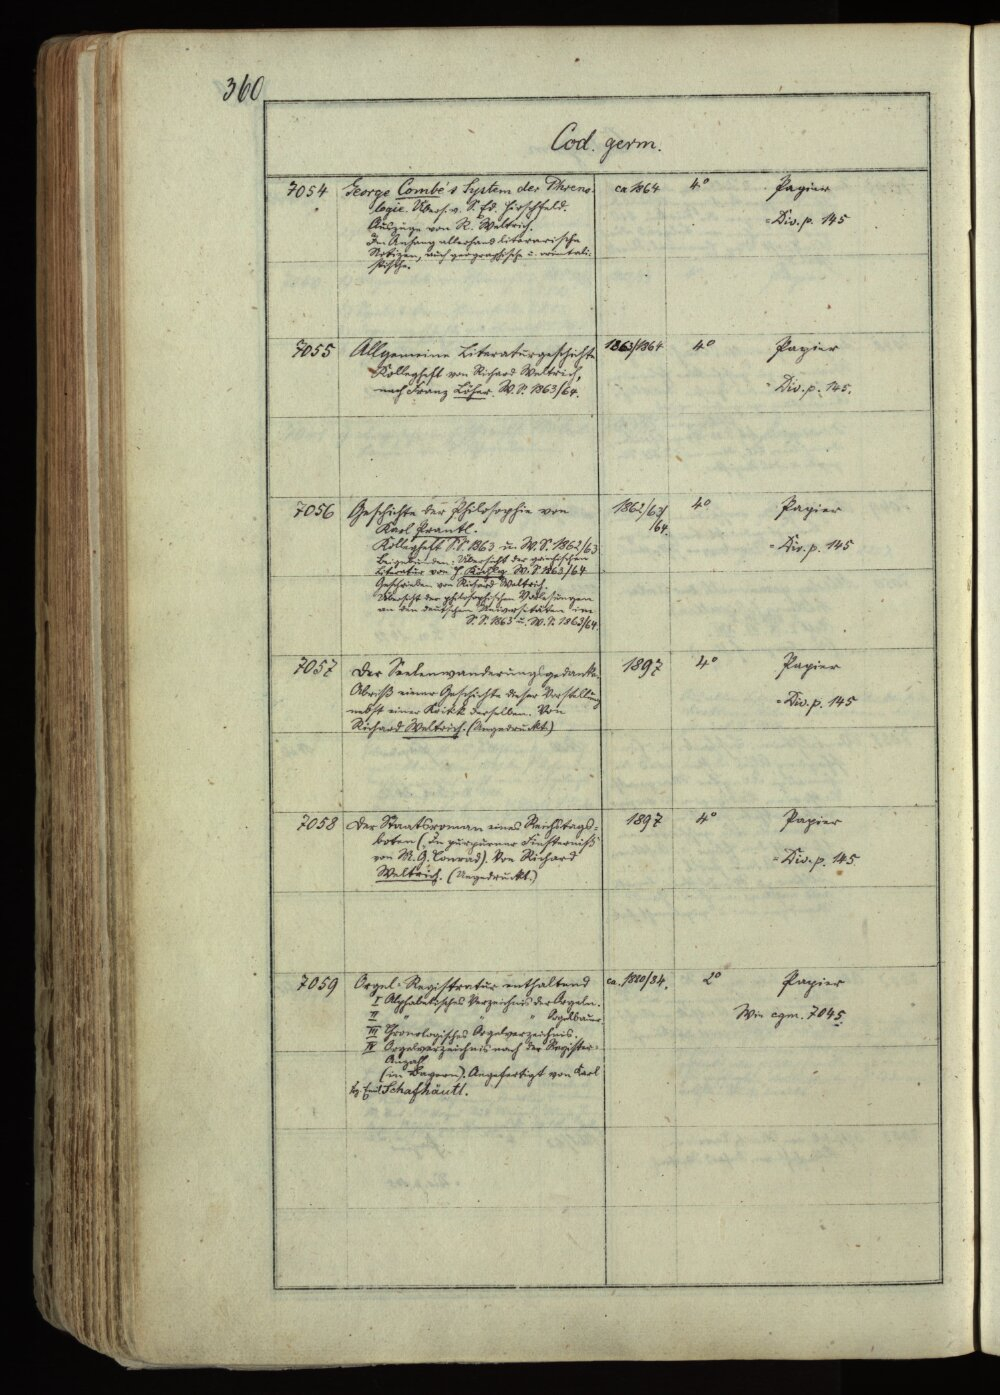 360
Cod. germ.
7054 George Combe's System der Phreno- ca 1864 4° Papier
logie. Übers. v. S. Ed. Hirschfeld. = Div. p. 145
Auszüge von R. Weltrich.
Im Anhang allerhand literarische
Notizen, auch geographische u. orientali-
stische.
7055 Allgemeine Literaturgeschichte 1863/1864 4° Papier
Kollegheft von Richard Weltrich, = Div. p. 145.
nach Franz Löher. W. S. 1863/64.
7056 Geschichte der Philosophie von 1862/63/ 4° Papier
Karl Prantl. /64.
Kollegheft S. S. 1863 u. W. S. 1862/63 = Div. p. 145
Beigebunden: Übersicht der
Literatur von W. S. 1863/64
Geschrieben von Richard Weltrich.
Übersicht der philosophischen Vorlesungen
an den deutschen Universitäten im
S. S. 1863 u. W. S. 1863/64.
7057 Der Seelenwanderungsgedanke. 1897 4° Papier
Abriß einer Geschichte dieser Vorstellung
nebst einer Kritik derselben. Von = Div. p. 145
Richard Weltrich. (Ungedruckt.)
7058 Der Staatsroman eines Reichstags- 1897 4° Papier
boten (In purpurner Finsterniß
von M. G. Conrad). Von Richard = Div. p. 145
Weltrich. (Ungedruckt.)
7059 Orgel-Registratur enthaltend ca. 1820/34. 2° Papier
I Alphabetisches Verzeichnis der Orgeln.
II " " " Orgelbauer. Wie cgm. 7045
III Chronologisches Orgelverzeichnis.
IV Orgelverzeichnis nach der Register-
Anzahl
(in Bayern). Angefertigt von Karl
Emil Schafhäutl.